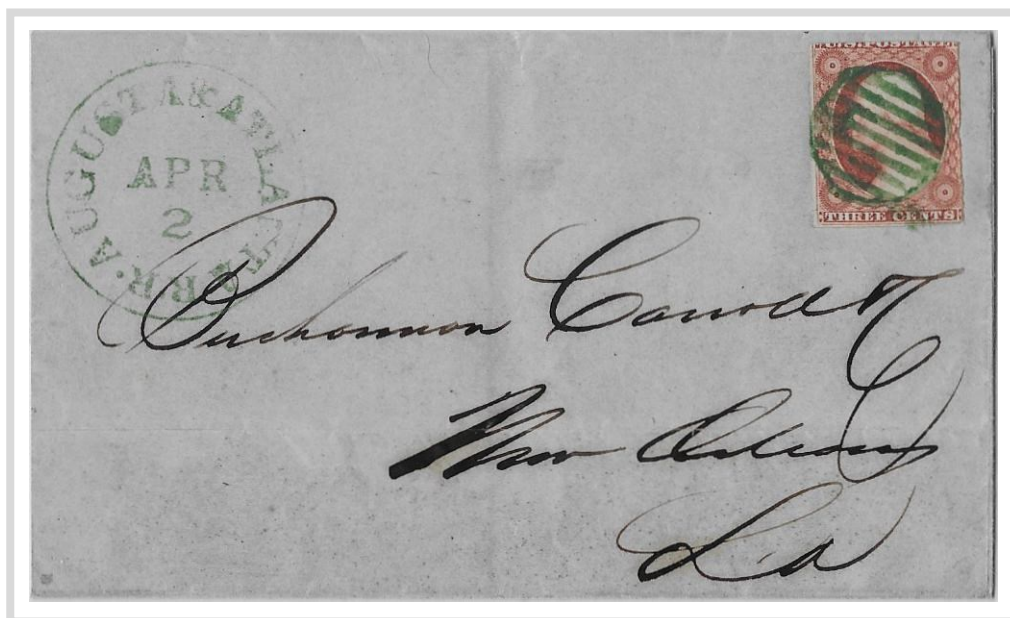 AUGUSTA & ATLANTA R.R.
APR
2
U.S. POSTAGE
THREE CENTS
Buchannon Carroll &
Co
New Orleans
La